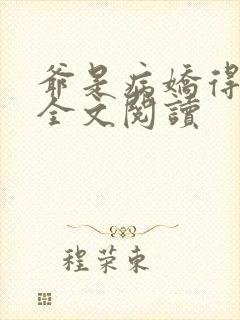 爷是病嬌得
全文閱讀
程荣東